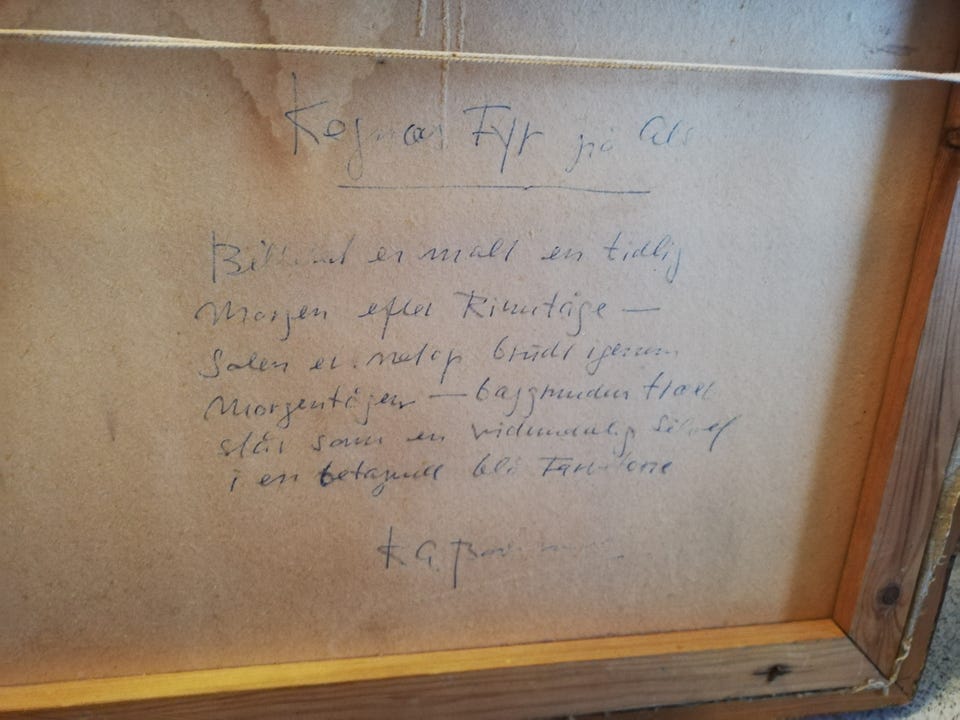 Kegnæs Fyr på Als
Billedet er malt en tidlig
Morgen efter Rimtåge —
Solen er netop brudt igennem
Morgentågen — baggrunden træet
står som en vidunderlig
i en betagende blå Farvetone
K G